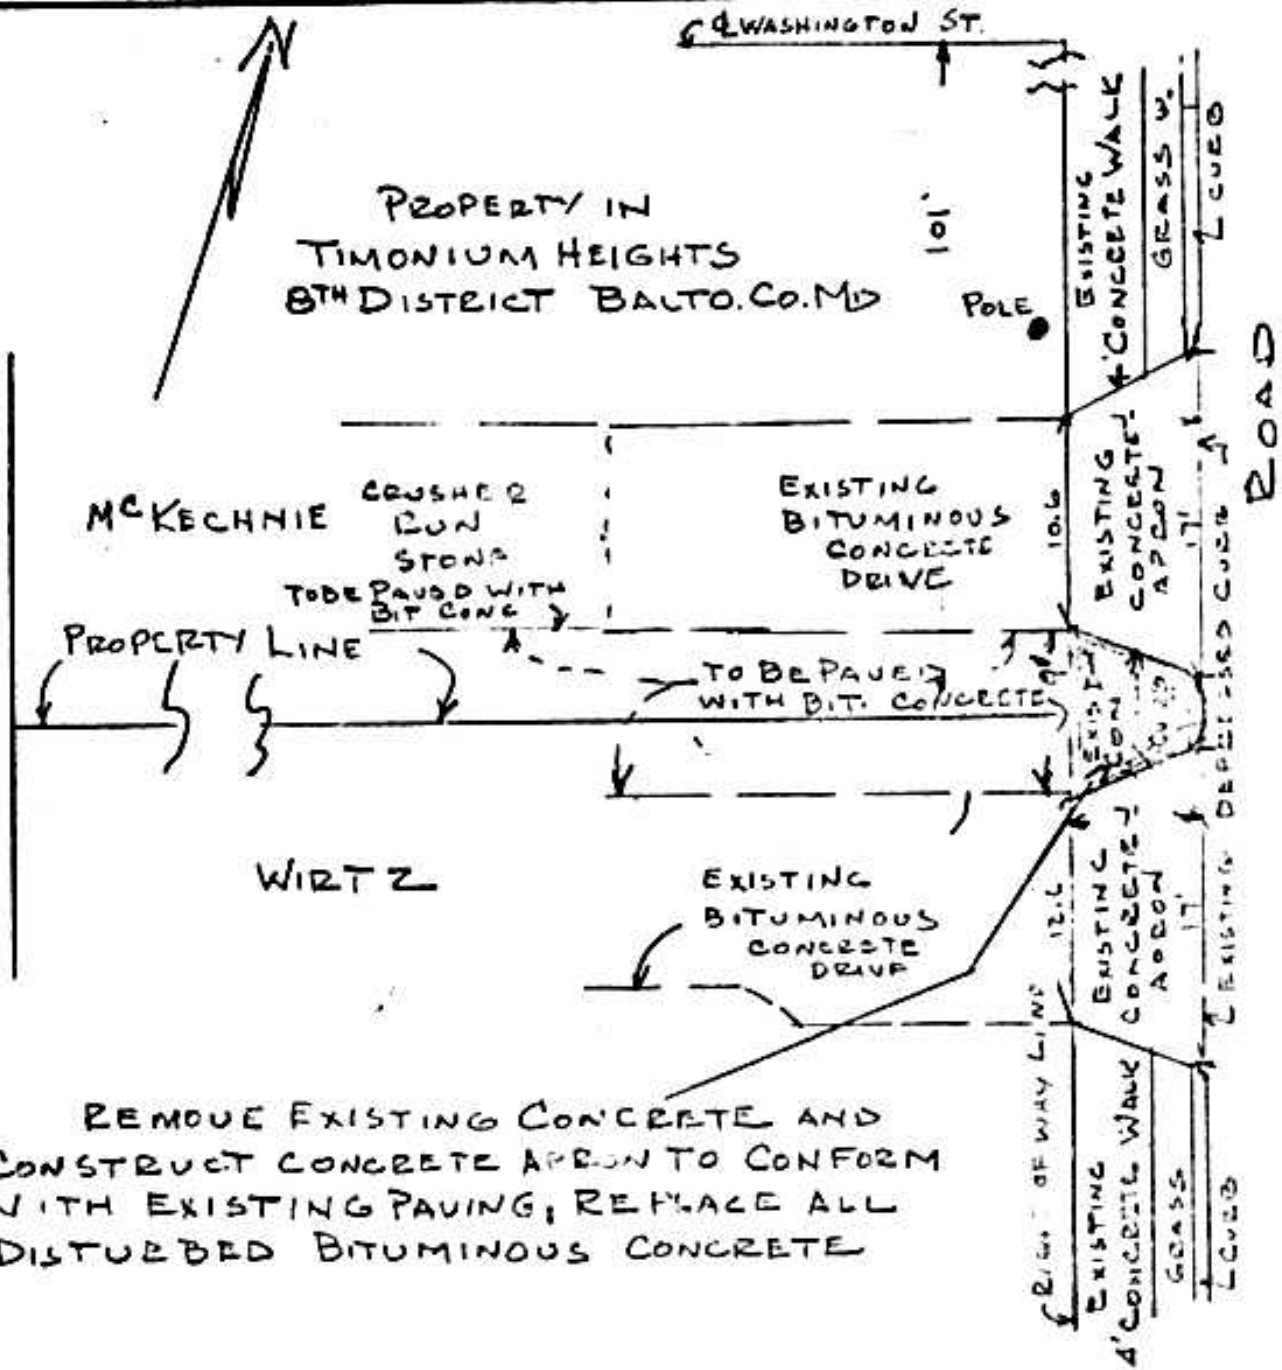 ℄ WASHINGTON ST.
N
PROPERTY IN
TIMONIUM HEIGHTS
8TH DISTRICT BALTO. CO. MD
101'
POLE
EXISTING
4' CONCRETE WALK
GRASS
CURB
ROAD
McKECHNIE
CRUSHER
RUN
STONE
TO BE PAVED WITH
BIT CONC
EXISTING
BITUMINOUS
CONCRETE
DRIVE
10.6
EXISTING
CONCRETE
APRON
17'
PROPERTY LINE
TO BE PAVED
WITH BIT. CONCRETE
EXIST
CON
EXISTING DEPRESSED CURB
WIRTZ
EXISTING
BITUMINOUS
CONCRETE
DRIVE
12.6
EXISTING
CONCRETE
APRON
17'
RIGHT OF WAY LINE
EXISTING
4' CONCRETE WALK
GRASS
CURB
REMOVE EXISTING CONCRETE AND
CONSTRUCT CONCRETE APRON TO CONFORM
WITH EXISTING PAVING, REPLACE ALL
DISTURBED BITUMINOUS CONCRETE